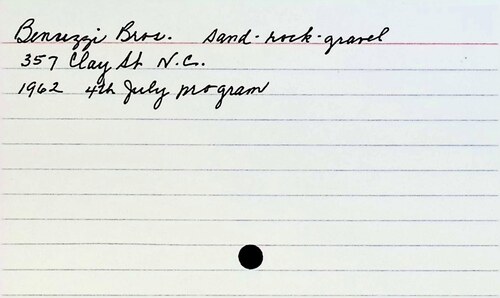 Benuzzi Bros. Sand-rock-gravel
357 Clay St N.C.
1962 4th July program